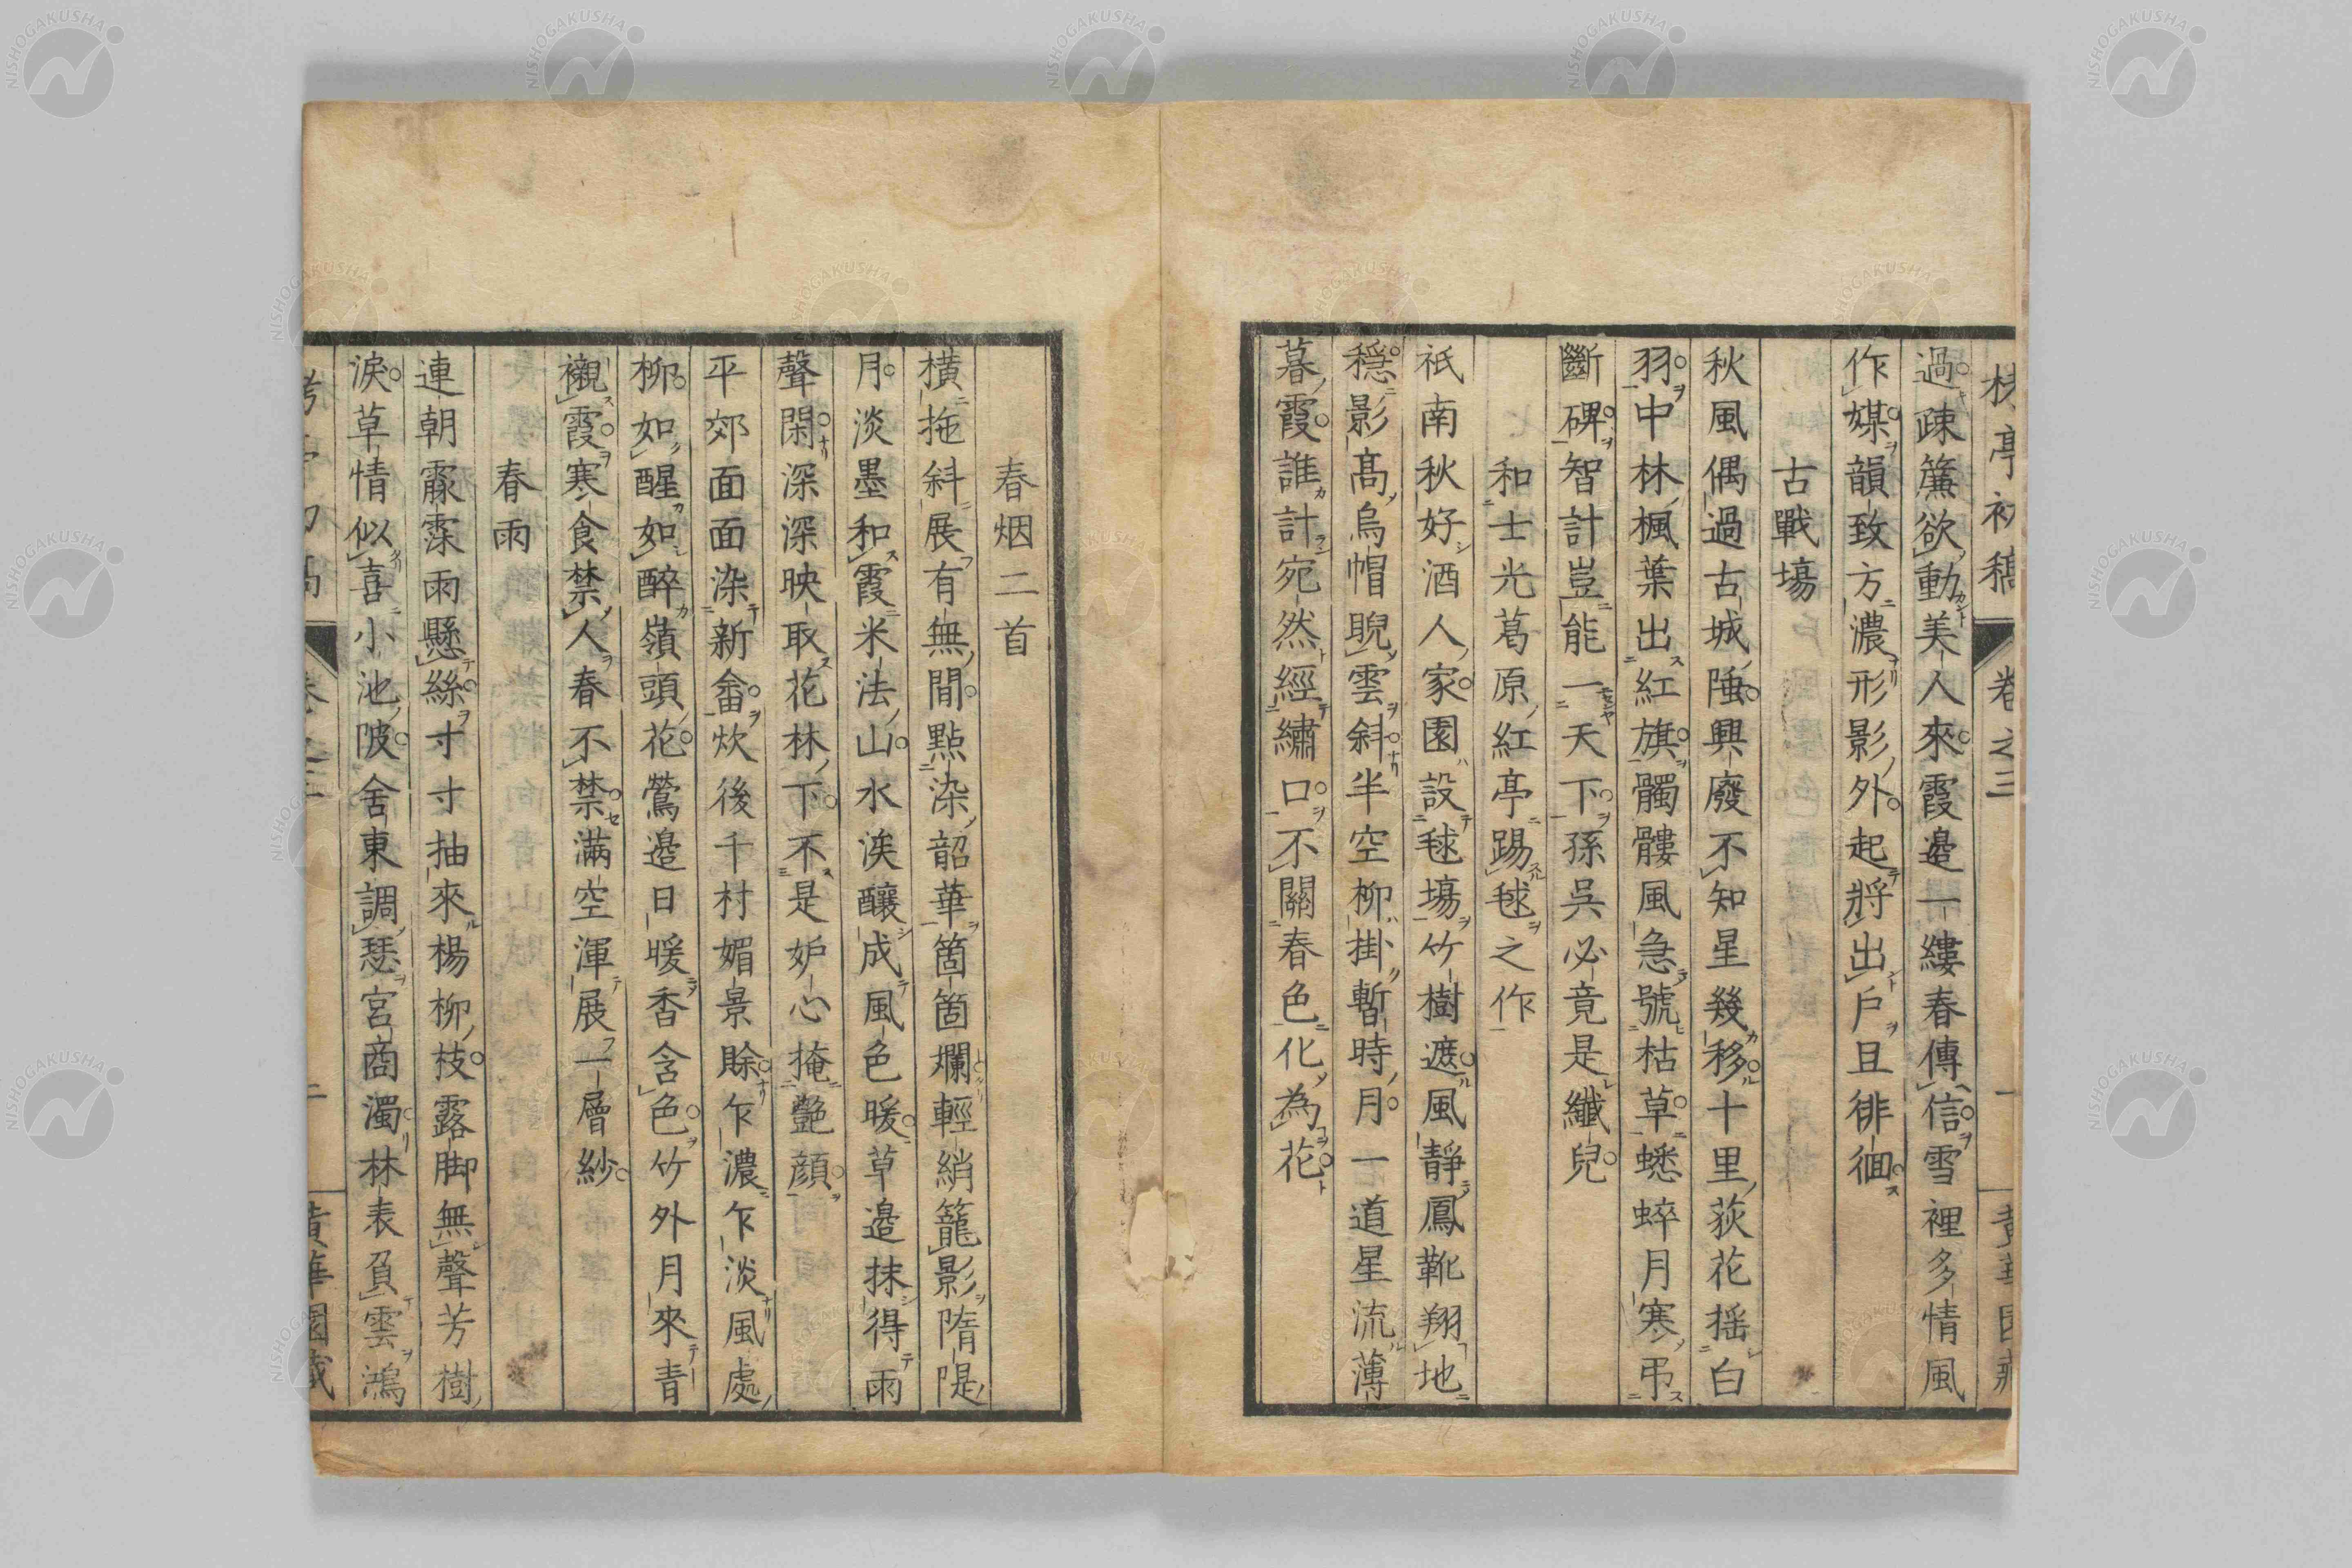 亭初稿 卷之三 一
過疎簾欲動美人來霞邉一縷春傳信雪裡多情風
作媒韻致方濃形影外起將出戸且徘徊
古戰塲
秋風偶過古城陲興廢不知星幾移十里荻花搖白
羽中林楓葉出紅旗髑髏風急號枯草蟋蟀月寒弔
斷碑智計豈能一天下孫呉必竟是纖兒
和士光葛原紅亭踢毬之作
祇南秋好酒人家園設毬塲竹樹遮風靜鳳靴翔地
穩影髙烏帽睨雲斜半空柳掛暫時月一道星流薄
暮霞誰計宛然經繡口不關春色化為花
春烟二首
橫拖斜展有無間點染韶華箇箇爛輕綃籠影隋隄
月淡墨和霞米法山水涘釀成風色暖草邉抹得雨
聲閑深深映取花林下不是妒心掩艷顔
平郊面面染新畬炊後千村媚景賒乍濃乍淡風處
柳如醒如醉嶺頭花鶯邉日暖香含色竹外月來青
襯霞寒食禁人春不禁滿空渾展一層紗
春雨
連朝霢霂雨懸絲寸寸抽來楊柳枝露脚無聲芳樹
淚草情似喜小池陂舍東調瑟宮商濁林表負雲鴻